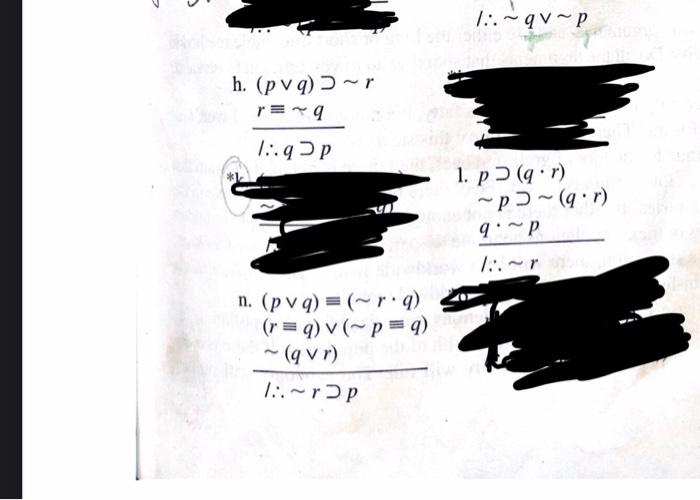 /∴ ~ q ∨ ~ p
h. (p ∨ q) ⊃ ~ r
r ≡ ~ q
/∴ q ⊃ p
l. p ⊃ (q · r)
~ p ⊃ ~ (q · r)
q · ~ p
/∴ ~ r
n. (p ∨ q) ≡ (~ r · q)
(r ≡ q) ∨ (~ p ≡ q)
~ (q ∨ r)
/∴ ~ r ⊃ p